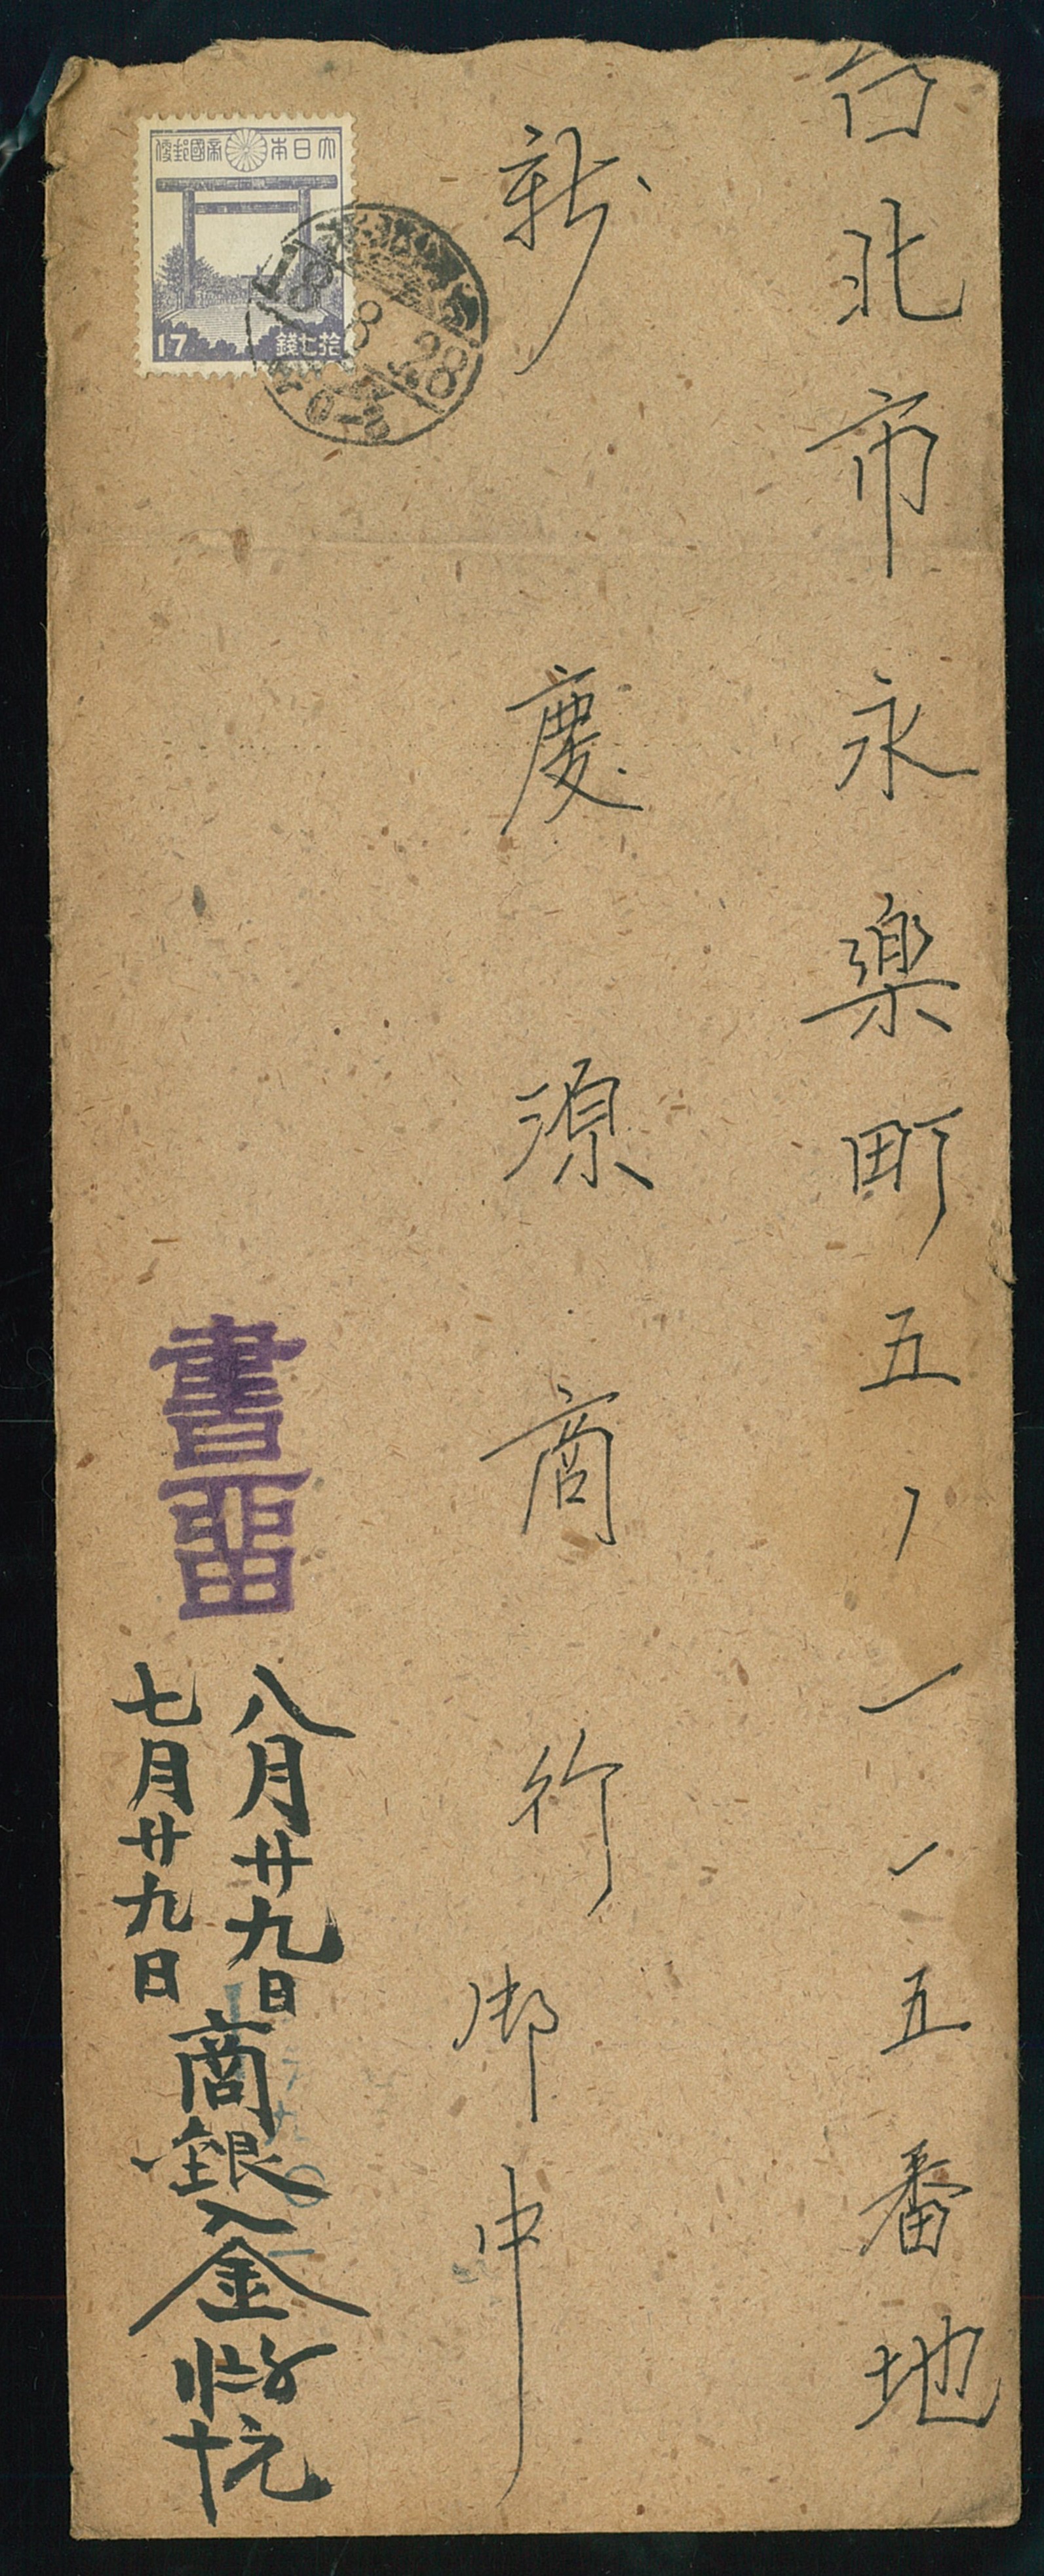 台北市永楽町五ノ一ノ五番地
新慶源商行御中
大日本帝國郵便
17 拾七錢
18 8 28
書留
八月廿九日
七月廿九日
商銀入金